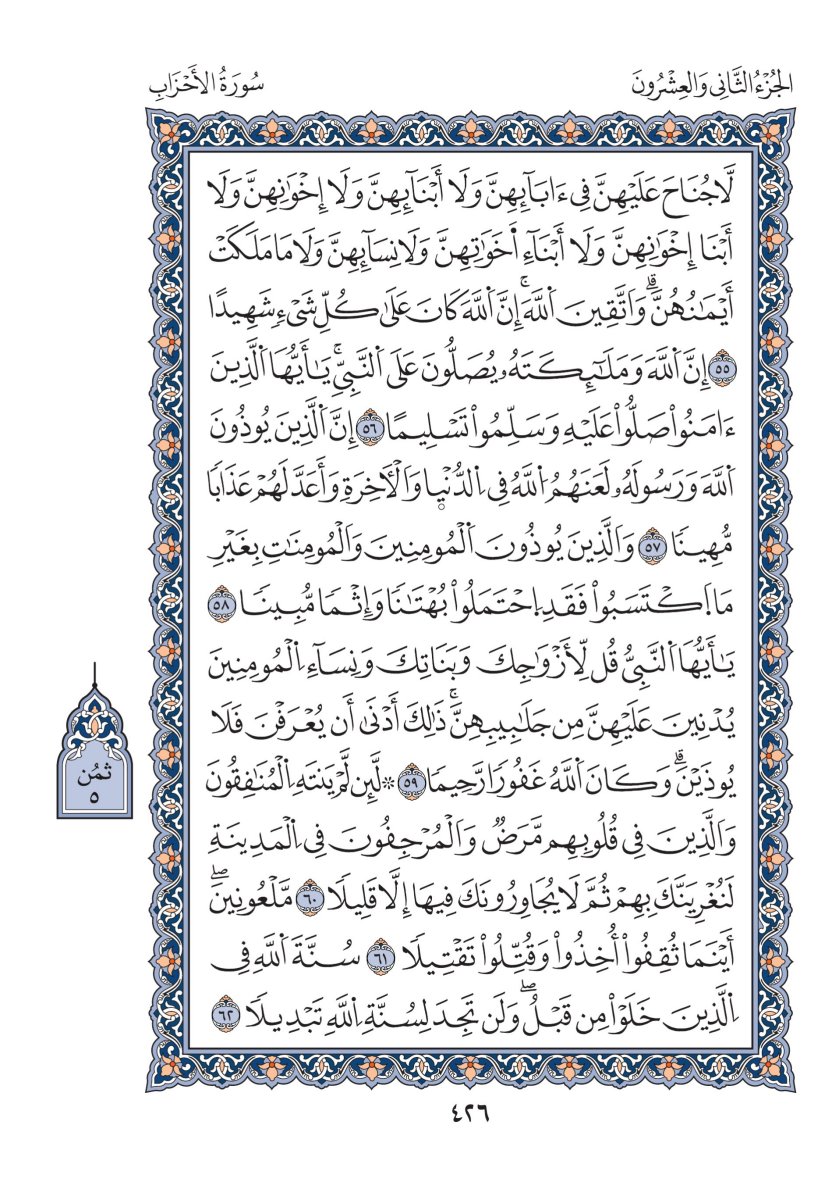 الجُزْءُ الثَّانِي وَالعِشْرُونَ
سُورَةُ الأَحْزَابِ
لَّا جُنَاحَ عَلَيْهِنَّ فِے ءَابَآئِهِنَّ وَلَا أَبْنَآئِهِنَّ وَلَا إِخْوَٰنِهِنَّ وَلَا
أَبْنَا إِخْوَٰنِهِنَّ وَلَا أَبْنَآءِ اَ۬خَوَٰتِهِنَّ وَلَا نِسَآئِهِنَّ وَلَا مَا مَلَكَتْ
أَيْمَٰنُهُنَّۗ وَاتَّقِينَ اَ۬للَّهَۚ إِنَّ اَ۬للَّهَ كَانَ عَلَىٰ كُلِّ شَےْءٖ شَهِيدًا
٥٥ إِنَّ اَ۬للَّهَ وَمَلَٰٓئِكَتَهُۥ يُصَلُّونَ عَلَى اَ۬لنَّبِيِّۚ يَٰأَيُّهَا اَ۬لَّذِينَ
ءَامَنُواْ صَلُّواْ عَلَيْهِ وَسَلِّمُواْ تَسْلِيمًا ٥٦ إِنَّ اَ۬لَّذِينَ يُوذُونَ
اَ۬للَّهَ وَرَسُولَهُۥ لَعَنَهُمُ اُ۬للَّهُ فِے اِ۬لدُّنْي۪ا وَالْأٓخِرَةِ وَأَعَدَّ لَهُمْ عَذَابٗا
مُّهِينٗا ٥٧ وَالَّذِينَ يُوذُونَ اَ۬لْمُومِنِينَ وَالْمُومِنَٰتِ بِغَيْرِ
مَا اَ۪كْتَسَبُواْ فَقَدِ اِ۪حْتَمَلُواْ بُهْتَٰنٗا وَإِثْمٗا مُّبِينٗا ٥٨
يَٰأَيُّهَا اَ۬لنَّبِيُّ قُل لِّأَزْوَٰجِكَ وَبَنَاتِكَ وَنِسَآءِ اِ۬لْمُومِنِينَ
يُدْنِينَ عَلَيْهِنَّ مِن جَلَٰبِيبِهِنَّۚ ذَٰلِكَ أَدْنَىٰ أَن يُعْرَفْنَ فَلَا
يُوذَيْنَۗ وَكَانَ اَ۬للَّهُ غَفُورٗا رَّحِيمٗا ٥٩ ۞ لَّئِن لَّمْ يَنتَهِ اِ۬لْمُنَٰفِقُونَ
وَالَّذِينَ فِے قُلُوبِهِم مَّرَضٞ وَالْمُرْجِفُونَ فِے اِ۬لْمَدِينَةِ
لَنُغْرِيَنَّكَ بِهِمْ ثُمَّ لَا يُجَاوِرُونَكَ فِيهَا إِلَّا قَلِيلٗا ٦٠ مَّلْعُونِينَۖ
أَيْنَمَا ثُقِفُواْ أُخِذُواْ وَقُتِّلُواْ تَقْتِيلٗا ٦١ سُنَّةَ اَ۬للَّهِ فِے
اِ۬لَّذِينَ خَلَوْاْ مِن قَبْلُۖ وَلَن تَجِدَ لِسُنَّةِ اِ۬للَّهِ تَبْدِيلٗا ٦٢
ثُمُن
٥
٤٢٦